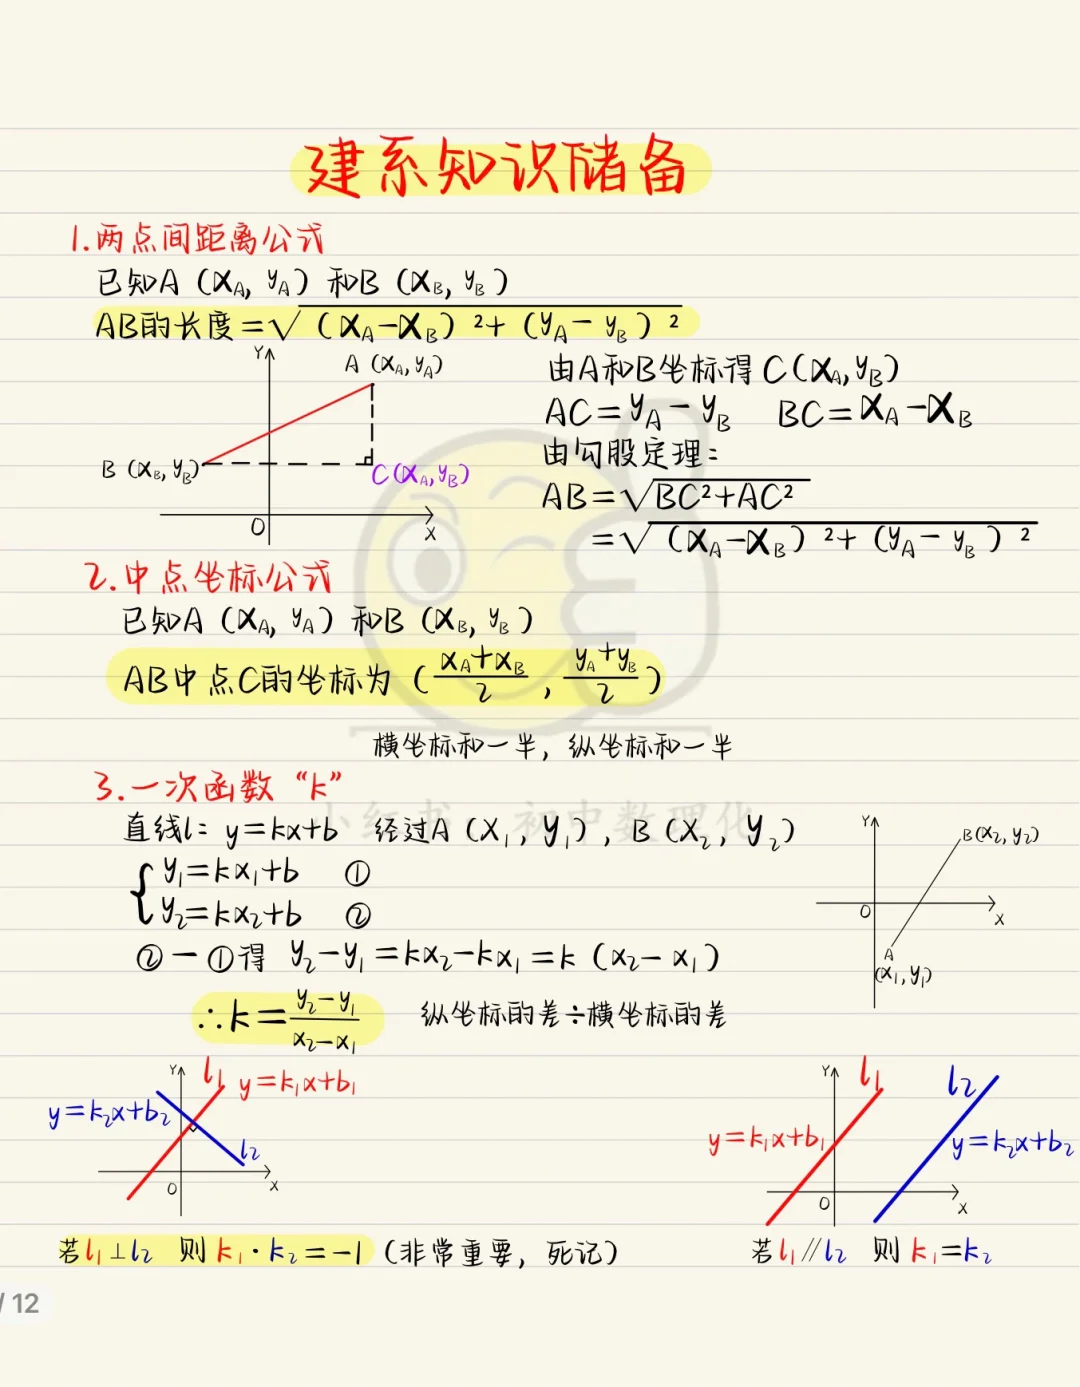 建系知识储备
1.两点间距离公式
已知A（XA, yA）和B（XB, yB）
AB的长度=√（XA-XB）²+（yA-yB）²
Y
A（XA, yA）
B（XB, yB）
C（XA, yB）
O
X
由A和B坐标得C（XA, yB）
AC=yA-yB BC=XA-XB
由勾股定理：
AB=√BC²+AC²
=√（XA-XB）²+（yA-yB）²
2.中点坐标公式
已知A（XA, yA）和B（XB, yB）
AB中点C的坐标为（(xA+xB)/2, (yA+yB)/2）
横坐标和一半，纵坐标和一半
3.一次函数“k”
小红书：初中数理化
直线l：y=kx+b 经过A（X₁, y₁），B（X₂, y₂）
y₁=kx₁+b ①
y₂=kx₂+b ②
②-①得 y₂-y₁=kx₂-kx₁=k（x₂-x₁）
∴k=(y₂-y₁)/(x₂-x₁) 纵坐标的差÷横坐标的差
Y
B（X₂, y₂）
O
X
A
（X₁, y₁）
Y
l₁
y=k₁x+b₁
y=k₂x+b₂
l₂
O
X
若l₁⊥l₂ 则k₁·k₂=-1（非常重要，死记）
Y
l₁
l₂
y=k₁x+b₁
y=k₂x+b₂
O
X
若l₁∥l₂ 则k₁=k₂
/ 12